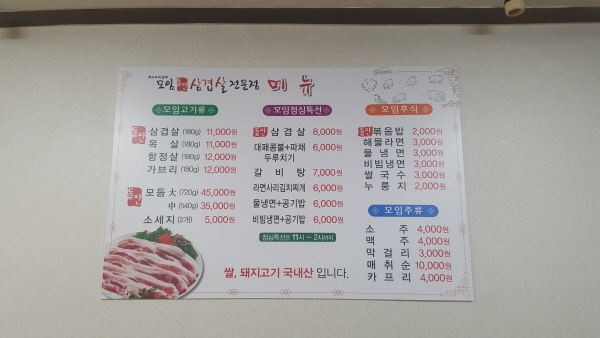 모임 돌판 삼겹살 전문점 메뉴
모임고기류
돌판 삼겹살 (180g) 11,000원
목살 (180g) 11,000원
항정살 (180g) 12,000원
가브리 (180g) 12,000원
모듬 大 (720g) 45,000원
中 (540g) 35,000원
소세지 (2개) 5,000원
모임점심특선
삼겹살 8,000원
대패콩불+파채 6,000원
두루치기
갈비탕 7,000원
라면사리김치찌개 6,000원
물냉면+공기밥 6,000원
비빔냉면+공기밥 6,000원
점심특선은 11시 ~ 2시까지
모임후식
볶음밥 2,000원
해물라면 3,000원
물냉면 3,000원
비빔냉면 3,000원
쌀국수 3,000원
누룽지 2,000원
모임주류
소주 4,000원
맥주 4,000원
막걸리 3,000원
매취순 10,000원
카프리 4,000원
쌀, 돼지고기 국내산 입니다.